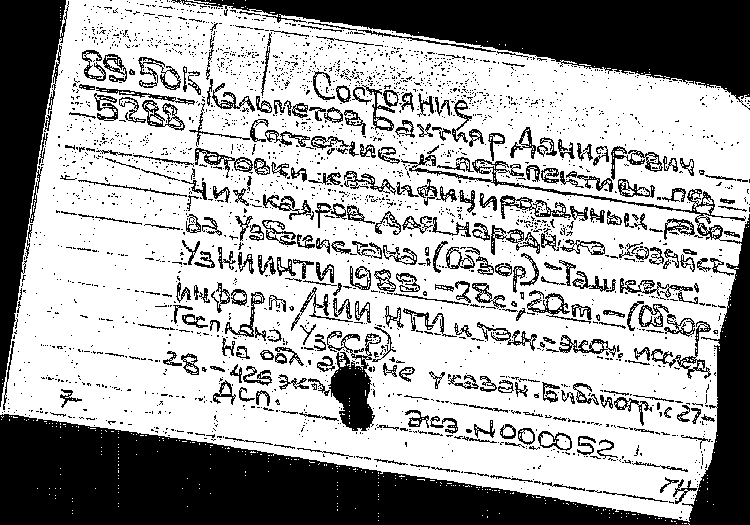 89-50К
5288
Состояние
Кальметов, Бахтияр Даниярович.
Состояние и перспективы под-
готовки квалифицированных рабо-
чих кадров для народного хозяйст-
ва Узбекистана: (Обзор) - Ташкент:
УзНИИНТИ, 1988. - 28с.; 20см. - (Обзор.
информ. / НИИ НТИ и техн.-экон. исслед.
Госплана УзССР)
На обл. авт. не указан. Библиогр.: с 27-
28. - 426 экз.
Дсп.
экз. N 000052
7